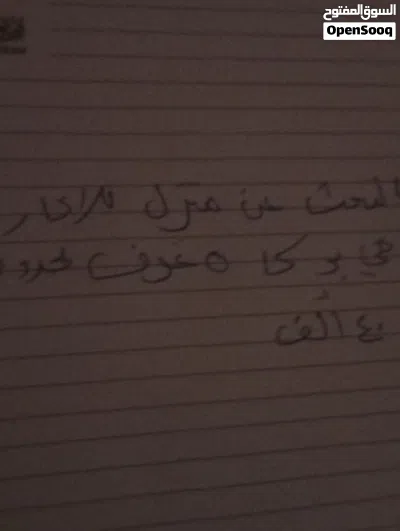 السوق المفتوح
OpenSooq
البحث عن منزل للايجار
في بركا ٥ غرف بحدود
٤٠ ألف